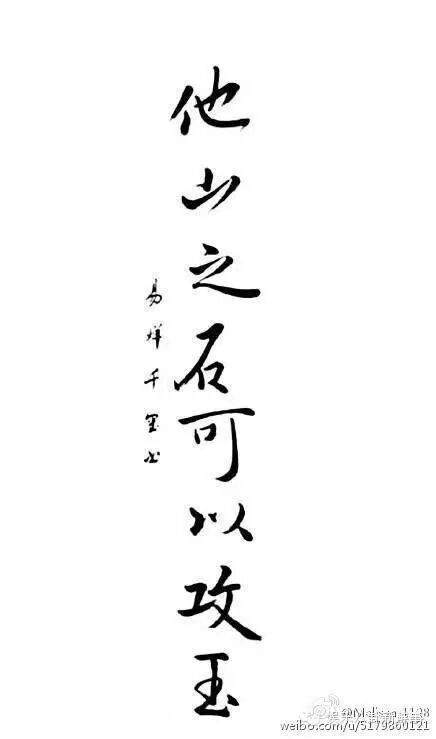 他山之石可以攻玉
易烊千玺书
weibo.com/u/5179860121